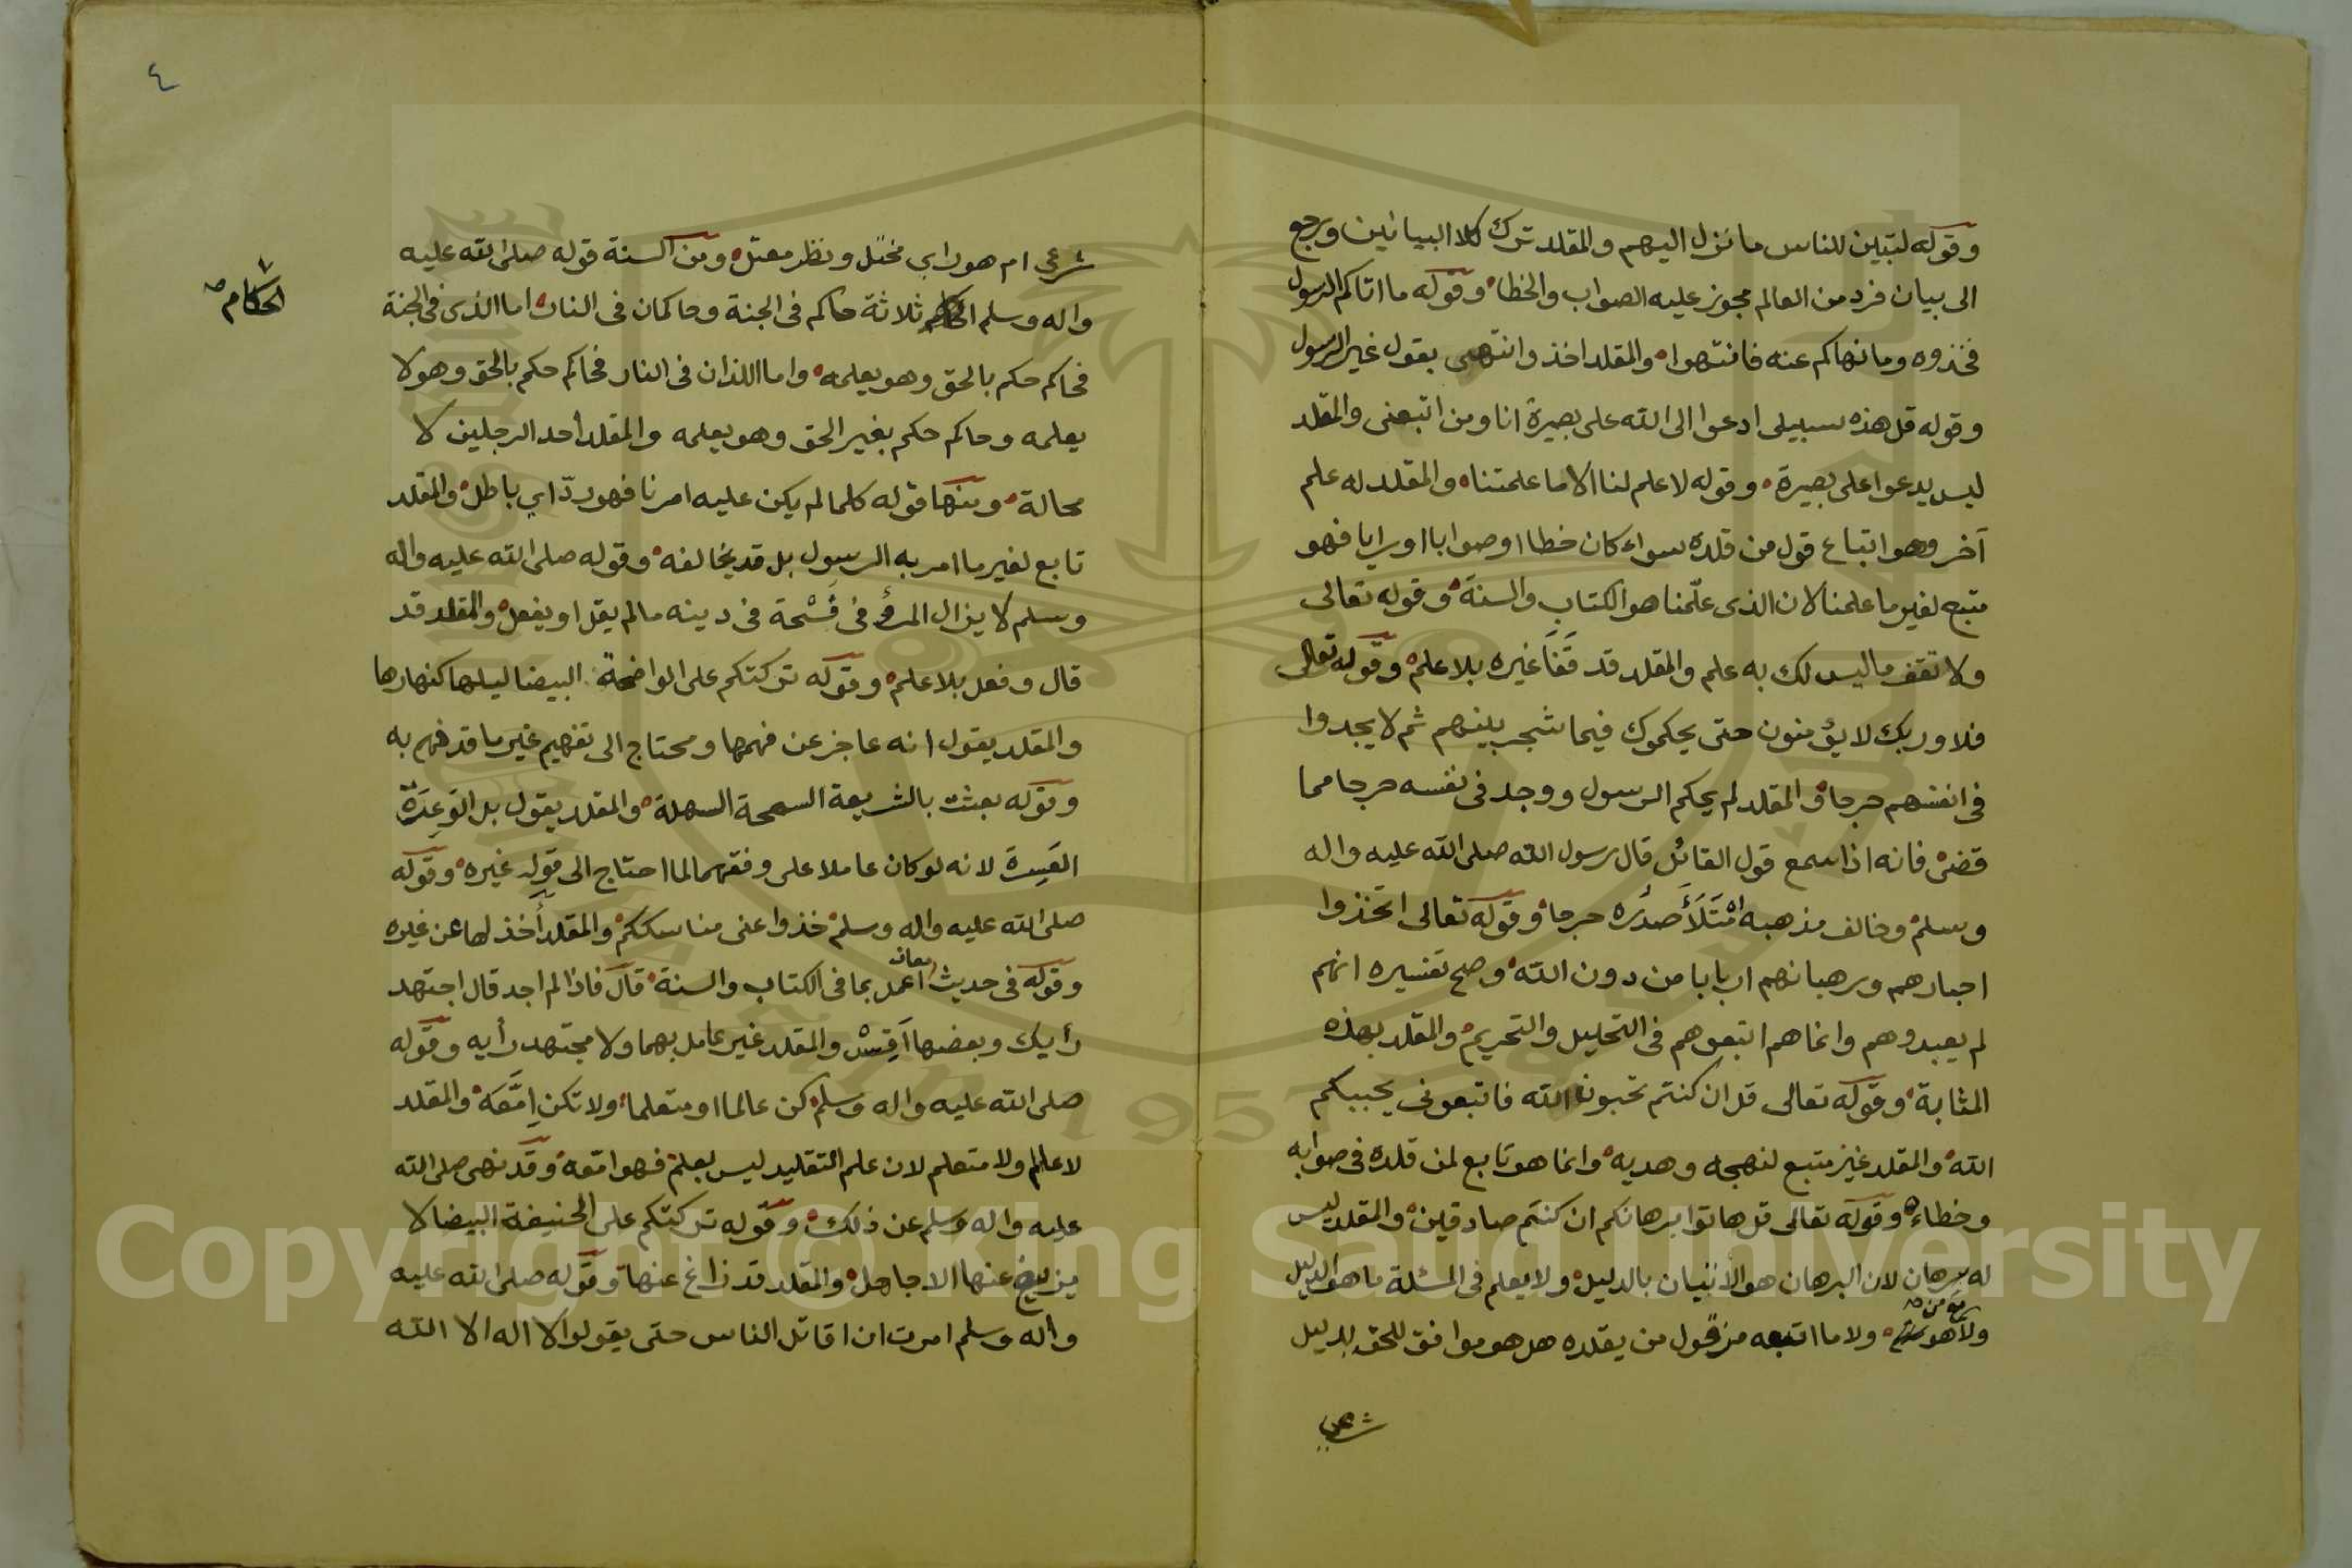 وقوله لتبين للناس ما نزل اليهم والمقلد ترك كلا البيانين ورجع
الى بيان فرد من العالم مجوز عليه الصواب والخطا وقوله ما اتاكم الرسول
فخذوه وما نهاكم عنه فانتهوا والمقلد اخذ وانتهى بقول غير الرسول
وقوله قل هذه سبيلى ادعوا الى الله على بصيرة انا ومن اتبعنى والمقلد
ليس يدعوا على بصيرة وقوله لا علم لنا الا ما علمتنا والمقلد له علم
آخر وهو اتباع قول من قلده سواء كان خطا او صوابا او رايا فهو
متبع لغير ما علمنا لان الذى علّمنا هو الكتاب والسنة وقوله تعالى
ولا تقف ما ليس لك به علم والمقلد قد قَفَا غيره بلا علم وقوله تعالى
فلا وربك لا يؤمنون حتى يحكموك فيما شجر بينهم ثم لا يجدوا
فى انفسهم حرجا والمقلد لم يحكم الرسول ووجد فى نفسه حرجا مما
قضى فانه اذا سمع قول القائل قال رسول الله صلى الله عليه واله
وسلم وخالف مذهبه امْتَلَأَ صدره حرجا وقوله تعالى اتخذوا
احبارهم ورهبانهم اربابا من دون الله وصح تفسيره انهم
لم يعبدوهم وانما هم اتبعوهم فى التحليل والتحريم والمقلد بهذه
المثابة وقوله تعالى قل ان كنتم تحبون الله فاتبعونى يحببكم
الله والمقلد غير متبع لنهجه وهديه وانما هو تابع لمن قلده فى صوابه
وخطاءه وقوله تعالى قل هاتوا برهانكم ان كنتم صادقين والمقلد ليس
له برهان لان البرهان هو الاتيان بالدليل ولا يعلم فى المسئلة ما هو الدليل
ولا هو ولا ما اتبعه من قول من يقلده هل هو موافق للحق لدليل
شرعي
٤
شرعي ام هو راي مختل ونظر معتل ومن السنة قوله صلى الله عليه
واله وسلم الحكام ثلاثة حاكم فى الجنة وحاكمان فى النار اما الذى فى الجنة
الحكام صح
فحاكم حكم بالحق وهو يعلمه واما اللذان فى النار فحاكم حكم بالحق وهو لا
يعلمه وحاكم حكم بغير الحق وهو يعلمه والمقلد أحد الرجلين لا
محالة ومنها قوله كلما لم يكن عليه امرنا فهو ردّ اي باطل والمقلد
تابع لغير ما امر به الرسول بل قد يخالفه وقوله صلى الله عليه واله
وسلم لا يزال المرؤ فى فُسْحة فى دينه ما لم يقل او يفعل والمقلد قد
قال وفعل بلا علم وقوله تركتكم على الواضحة البيضا ليلها كنهارها
والمقلد يقول انه عاجز عن فهمها ومحتاج الى تفهيم غير ما قد فهم به
وقوله بعثت بالشريعة السمحة السهلة والمقلد يقول بل الوَعِرَة
العَسِرة لانه لو كان عاملا على وفقهما لما احتاج الى قول غيره وقوله
صلى الله عليه واله وسلم خذوا عنى مناسككم والمقلد أخذ لها عن غيره
وقوله فى حديث معاذ اعمل بما فى الكتاب والسنة قال فاذا لم اجد قال اجتهد
رأيك وبعضها اَقِسْ والمقلد غير عامل بهما ولا مجتهد رأيه وقوله
صلى الله عليه واله وسلم كن عالما او متعلما ولا تكن اِمَّعَه والمقلد
لا عالم ولا متعلم لان علم التقليد ليس بعلم فهو امّعه وقد نهى صلى الله
عليه واله وسلم عن ذلك وقوله تركتكم على الحنيفة البيضا لا
يزيغ عنها الا جاحل والمقلد قد زاغ عنها وقوله صلى الله عليه
واله وسلم امرت ان اقاتل الناس حتى يقولوا لا اله الا الله
Copyright © King Saud University
1957